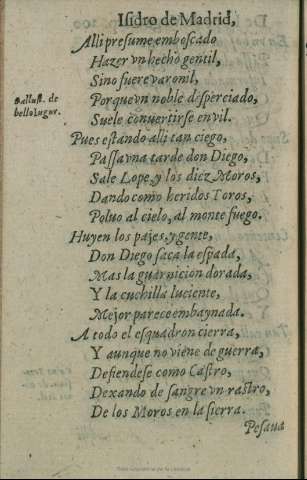 Isidro de Madrid,
Alli presume emboscado
Hazer vn hecho gentil,
Sino fuere varonil,
Sallust. de
bello Iugur.
Porque vn noble despreciado,
Suele conuertirse en vil.
Pues estãdo alli tan ciego,
Passa vna tarde don Diego,
Sale Lope, y los diez Moros,
Dando como heridos Toros,
Poluo al cielo, al monte fuego.
Huyen los pajes, y gente,
Don Diego saca la espada,
Mas la guarnicion dorada,
Y la cuchilla luciente,
Mejor parece embaynada.
A todo el esquadron cierra,
Y aunque no viene de guerra,
Defiendese como Castro,
Dexando de sangre vn rastro,
De los Moros en la sierra.
Pesaua